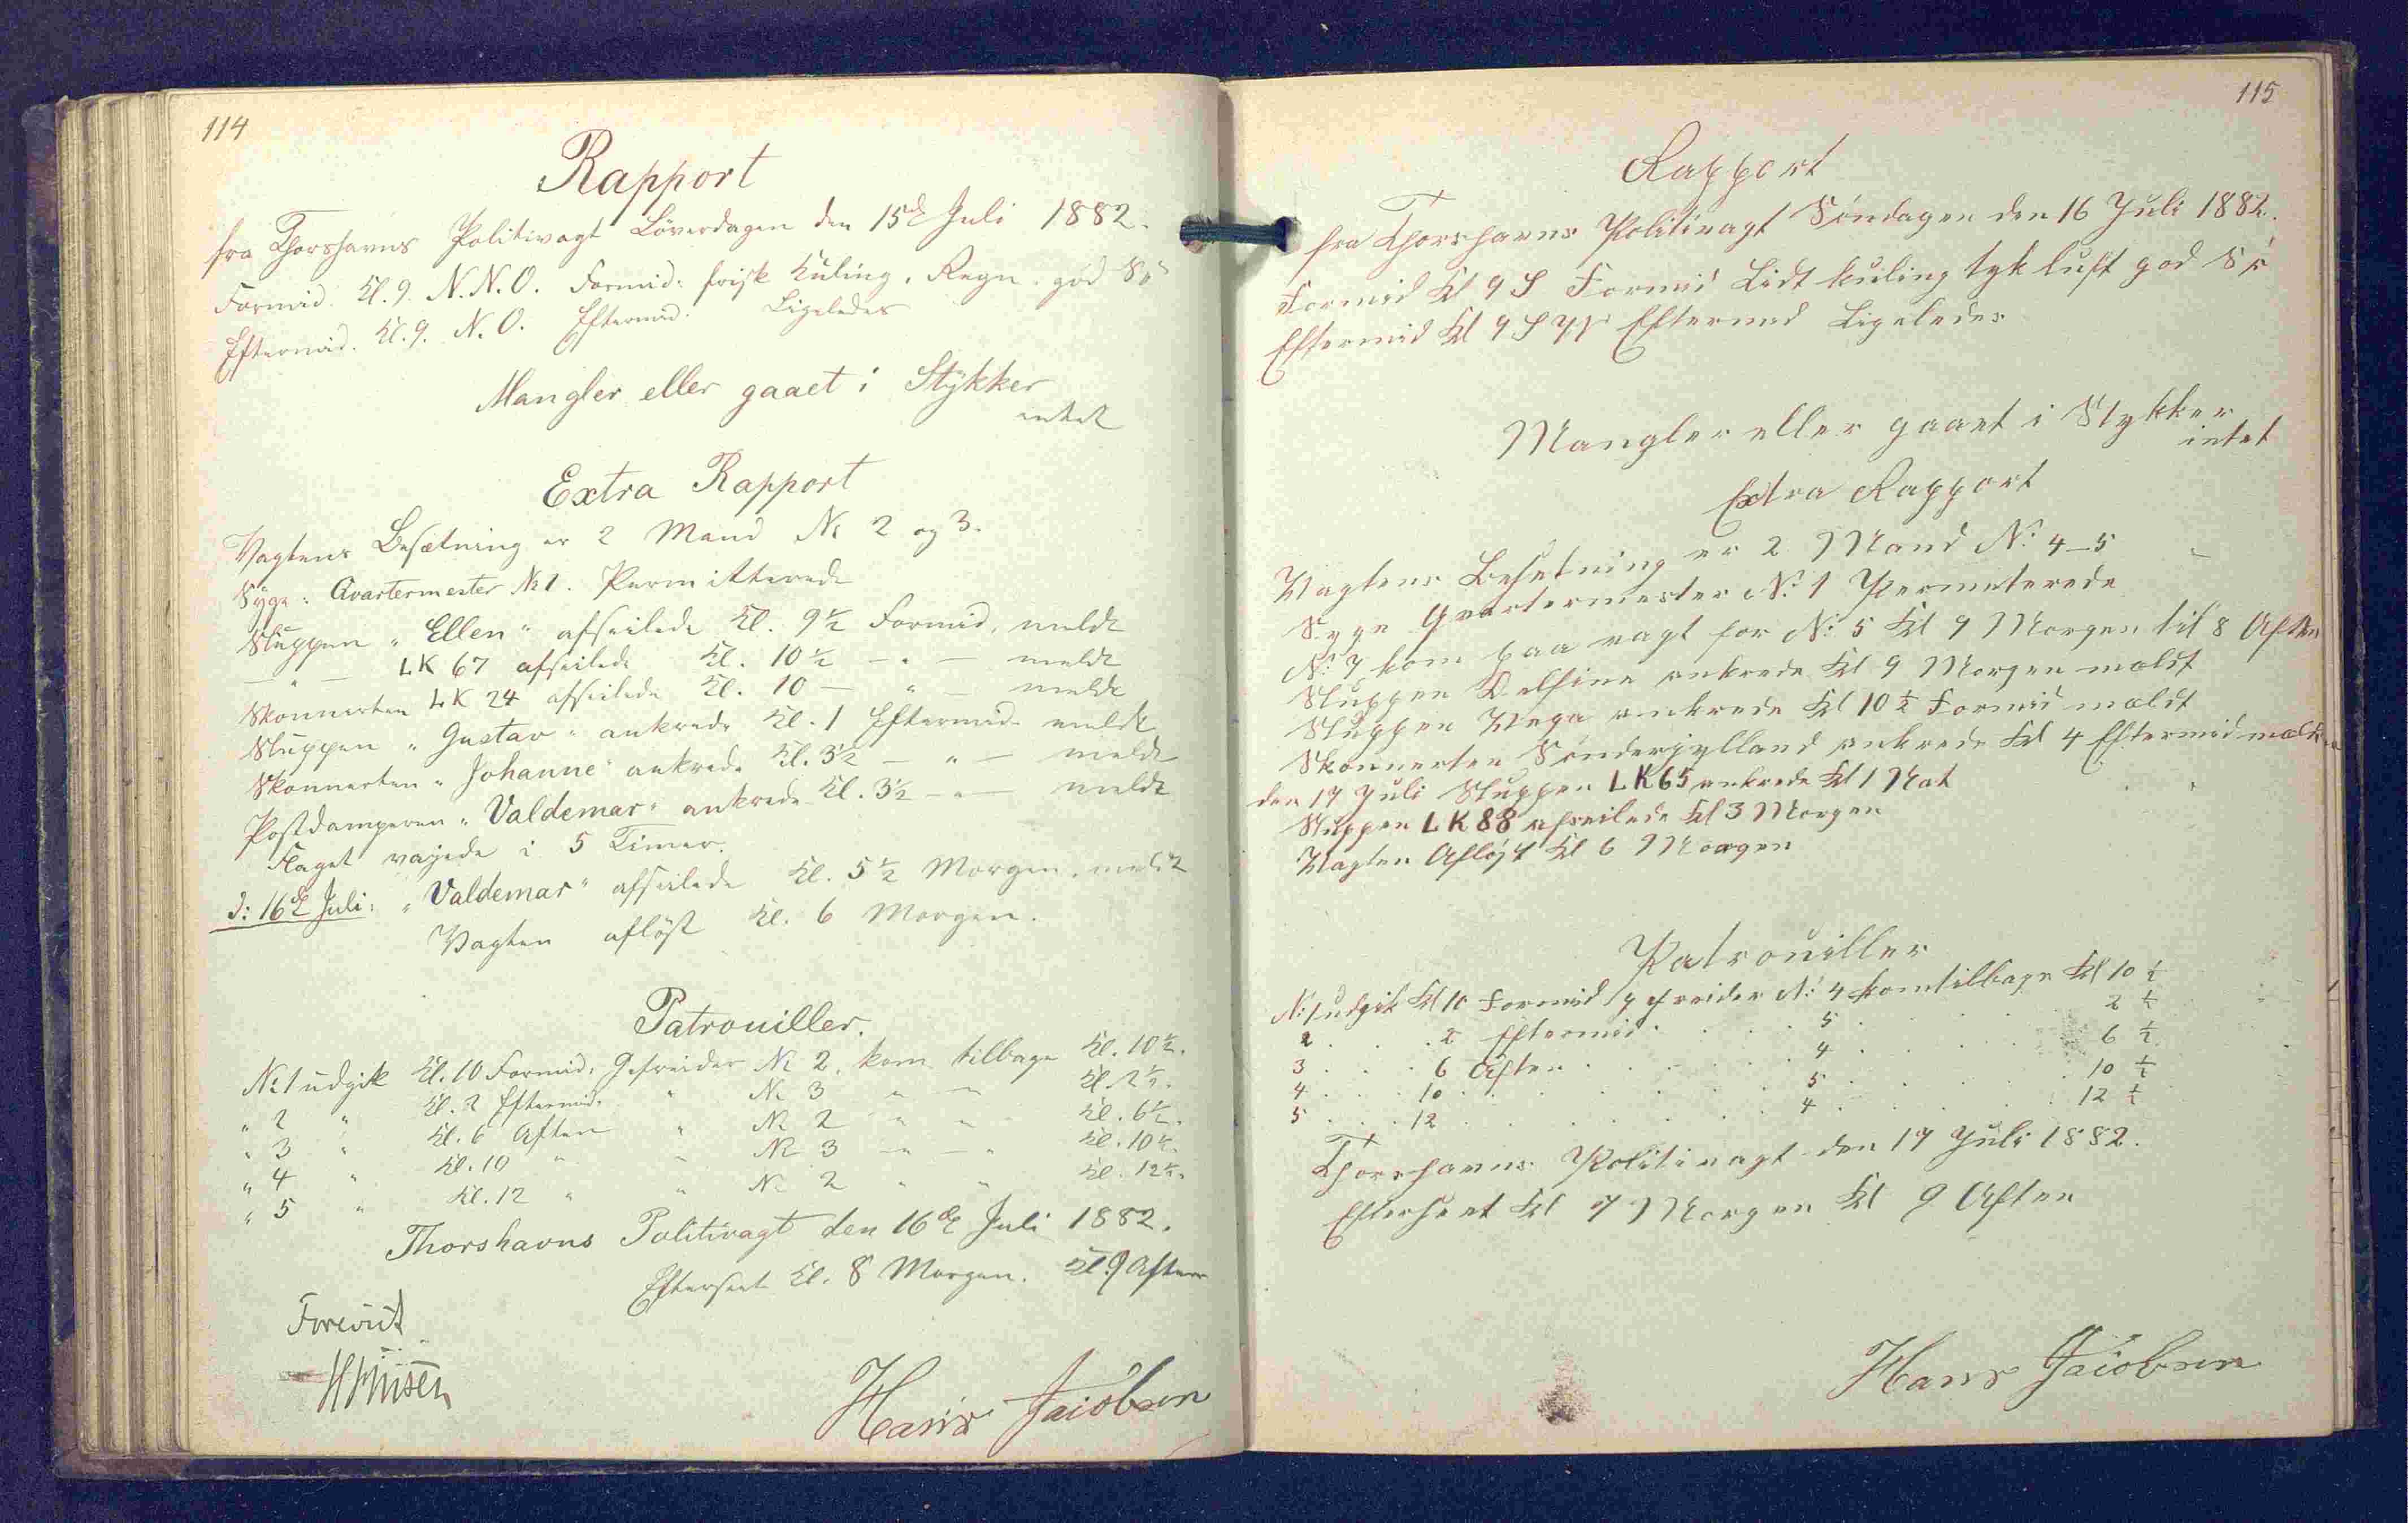 114
Rapport
fra Thorshavns Politivagt Löverdagen den 15de Juli 1882.
Formid. Kl. 9. N.N.O. Formid: frisk Kuling, Regn. god Sö
Eftermid. Kl. 9. N.O. Eftermid: Ligeledes
Mangler eller gaaet i Stykker
intet
Extra Rapport
Vagtens Besætning er 2 Mand No 2 og 3.
Syge: Qvartermester No 1. Permitterede
Sluppen "Ellen" afseilede Kl. 9½ Formid. meldt
— " — LK 67 afseilede Kl. 10½ — " — meldt
Skonnerten LK 24 afseilede Kl. 10 — " — meldt
Sluppen "Gustav" ankrede Kl. 1 Eftermid. meldt
Skonnerten "Johanne" ankrede Kl. 3½ — " — meldt
Postdamperen "Valdemar" ankrede Kl. 3½ — " — meldt
Flaget vajede i 5 Timer.
d: 16de Juli: "Valdemar" afseilede Kl. 5½ Morgen. meldt
Vagten aflöst Kl. 6 Morgen.
Patrouiller.
No 1 udgik Kl. 10 Formid. Gefreider No 2. kom tilbage Kl. 10½.
" 2 " Kl. 2 Eftermid. " No 3 " — Kl. 2½.
" 3 " Kl. 6 Aften " No 2 " " Kl. 6½.
" 4 " Kl. 10 " " No 3 — " — " Kl. 10½.
" 5 " Kl. 12 " " No 2 " " Kl. 12½.
Thorshavns Politivagt den 16de Juli 1882.
Efterseet Kl. 8 Morgen. Kl. 9 Aften
Forevist
Hans Jacobsen
115
Rapport
fra Thorshavns Politivagt Söndagen den 16 Juli 1882.
Formid Kl 9 S Formid Lidt kuling tyk luft god Sö
Eftermid Kl 9 Eftermid Ligeledes
Mangler eller gaaet i Stykker
intet
Extra Rapport
Vagtens Besetning er 2 Mand No 4-5
Syge Qvartermester No 1 Permeterede
No 7 kom paa vagt for No 5 Kl 9 Morgen til 8 Aften
Sluppen Delfine ankrede Kl 9 Morgen mældt
Sluppen Vega ankrede Kl 10½ Formid mældt
Skonnerten Sönderjylland ankrede Kl 4 Eftermid mældt
den 17 Juli Sluppen LK 65 ankrede Kl 1 Nat
Sluppen LK 88 afseilede Kl 3 Morgen
Vagten Aflöjst Kl 6 Morgen
Patrouiller
No 1 udgik Kl 10 Formid Gefreider No 4 kom tilbage Kl 10½
2 . . . 2 Eftermid . . . 5 . . . 2½
3 . . . 6 Aften . . . 4 . . . 6½
4 . . . 10 . . . 5 . . . 10½
5 . . . 12 . . . 4 . . . 12½
Thorshavns Politivagt den 17 Juli 1882.
Efterseet Kl 7 Morgen Kl 9 Aften
Hans Jacobsen